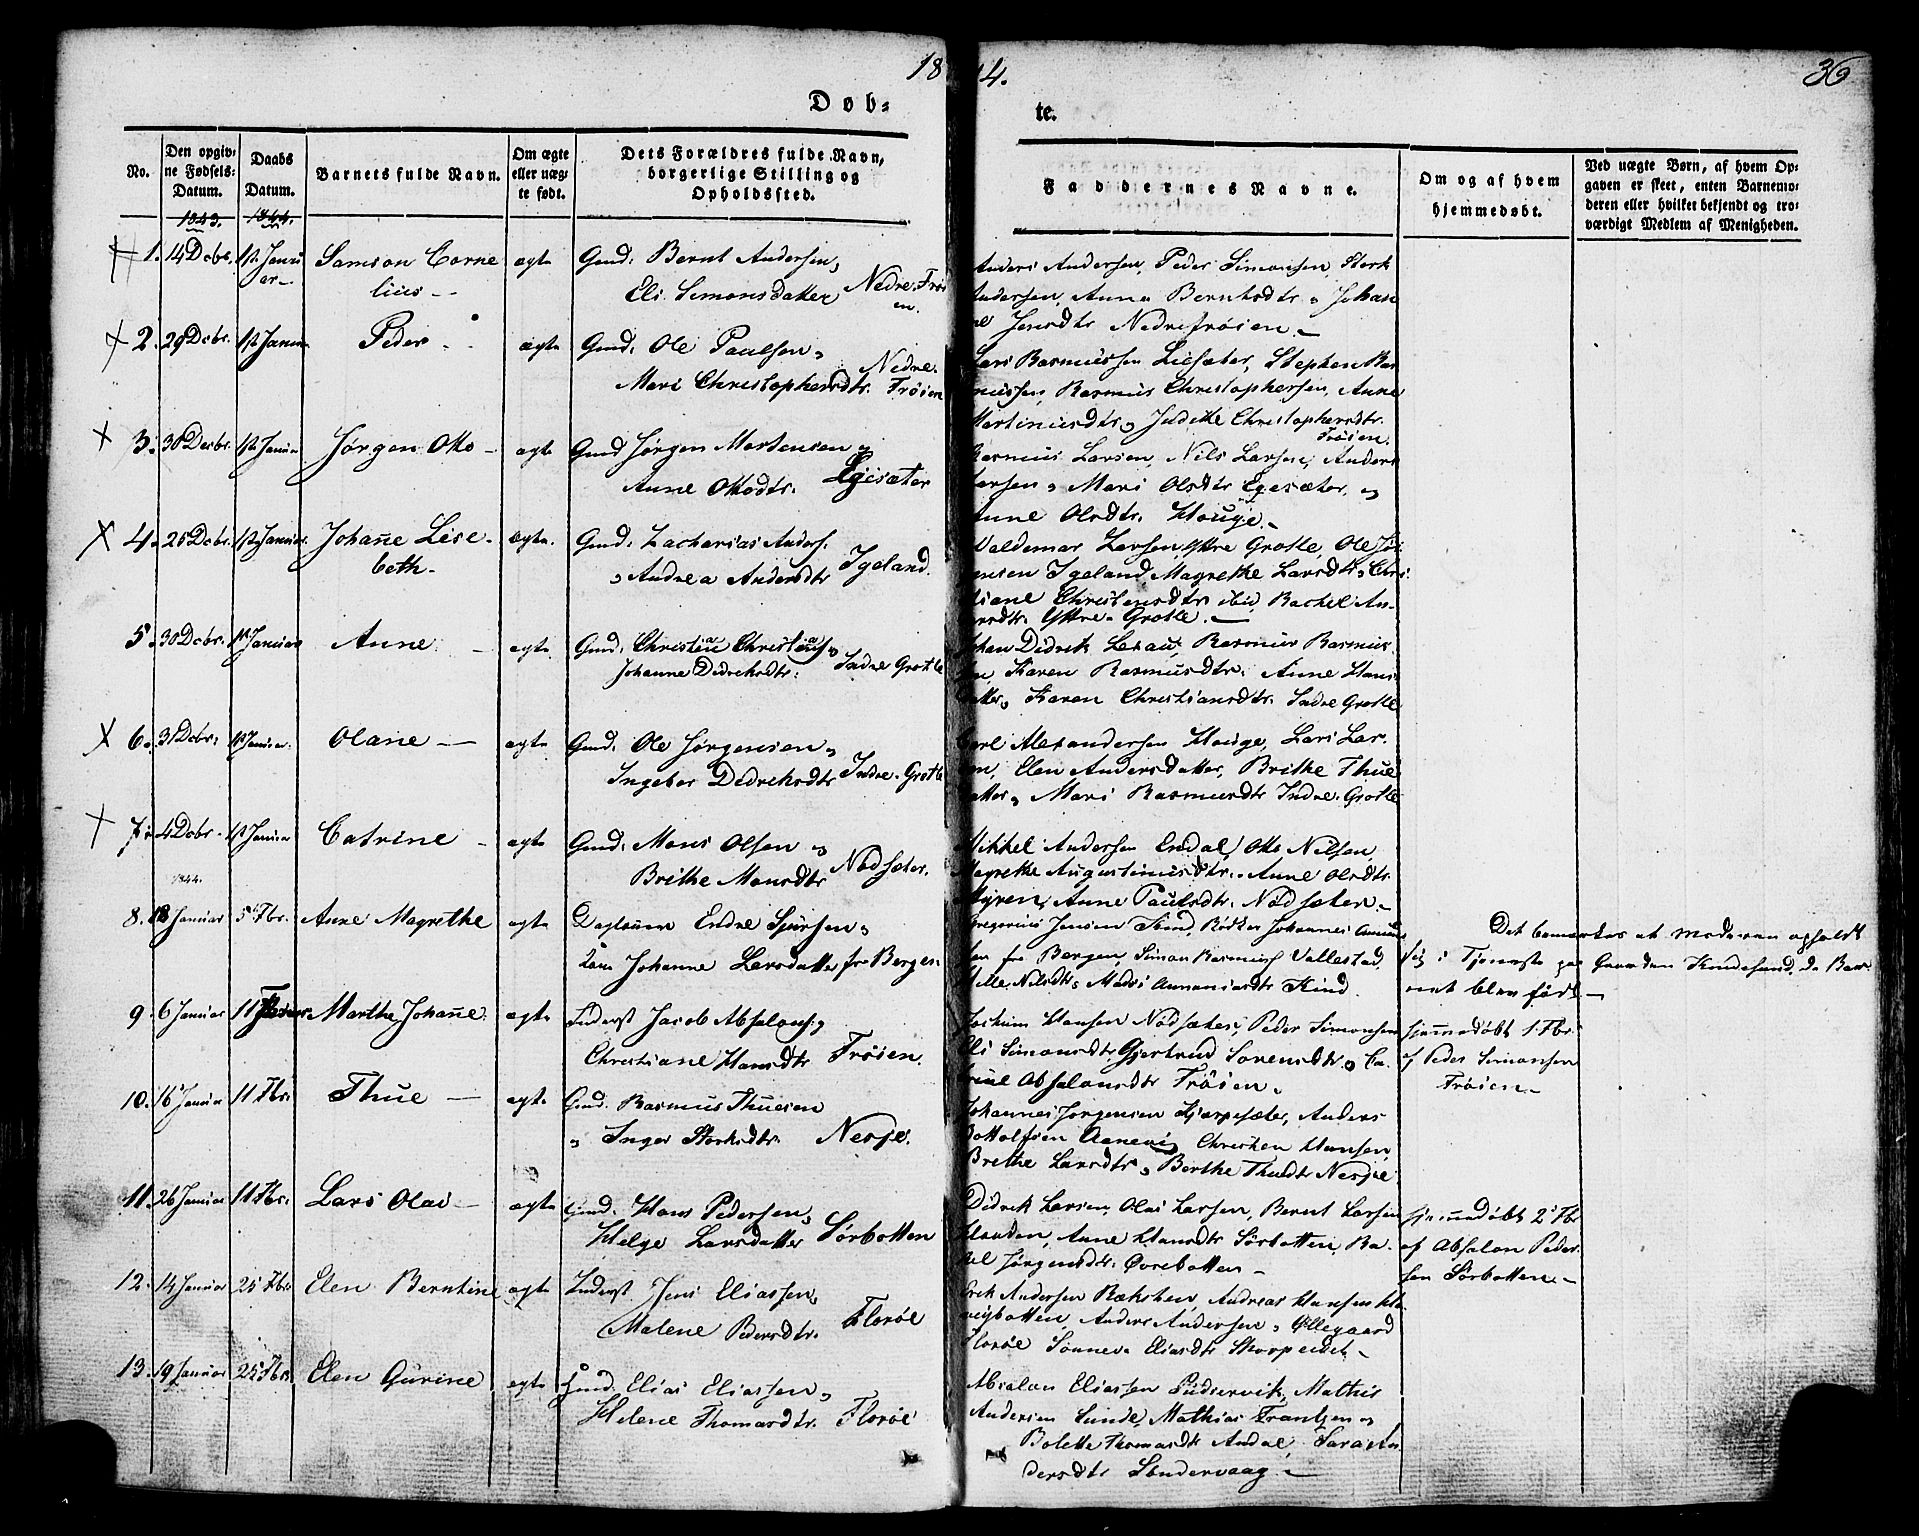 18
4.
36
Døb=
te.
No.
Den opgiv=
ne Fødsels=
Datum.
Daabs
Datum.
Barnets fulde Navn.
Om ægte
eller uæg=
te født.
Dets Forældres fulde Navn,
borgerlige Stilling og
Opholdssted.
Faddernes Navne.
Om og af hvem
hjemmedøbt.
Ved uægte Børn, af hvem Op=
gaven er skeet, enten Barnemo=
deren eller hvilket bekjendt og tro=
værdigt Medlem af Menigheden.
1843. 1844.
1. 14 Dcbr. 1st Janu Samson Corne ægte Gmd: Bernt Andersen,
ar- lius - Eli Simonsdatter Nedre Frøi
en.
Anders Andersen, Peder Simonsen, Stork
Andersen, Anna Berntsdtr, Johan
ne Jensdtr Nedrefrøien -
2. 29 Dcbr. 1st Januar Peder ægte Gmd: Ole Paulsen,
Mari Christophersdtr. Nedre Frøien
Lars Rasmussen Liesæter, Stephen Ras
mussen, Rasmus Christophersen, Anne
Martinusdtr, Judithe Christophersdtr.
Frøien.
3. 30 Decbr. 1st Januar Jørgen Otto - ægte Gmd Jørgen Mortensen
Anne Ottodtr. Egesæter
Rasmus Larsen, Nils Larsen, Anders
Larsen, Mari Olsdtr Egesæter,
Anne Olsdtr. Houge. -
4. 25 Dcbr. 1st Januar. Johanne Lise- ægte. Gmd: Zacharias Anders.
beth - Andrea Andersdtr Igeland.
Valdemar Larsen, Ytre Grotle, Ole Jør
gensen Igeland, Magrethe Larsdtr, Chri
stiane Christensdtr ibid, Rachel An-
dersdtr. Yttre Grotle. -
5. 30 Dcbr. 1st Januar Anne. - ægte Gmd: Christian Christians.
Johanne Didreksdtr: Indre Grotle
Johan Didrik, Rasmus Rasmus
sen, Karen Rasmusdtr. Anne Hans
datter, Karen Christiansdtr. Indre Grotle
6. 31 Dcbr: 1st Januar. Olane - ægte Gmd: Ole Jørgensen,
Ingebor Didreksdtr Indre Grotle
Carl Alexandersen Houge, Lars Lar-
sen, Elen Andersdatter, Brithe Thue
datter, Mari Rasmusdtr Indre Grotle
7. 4 Dcbr 1st Januar Catrine - ægte Gmd: Mons Olsen
Brithe Monsdtr Nødsæter.
Mikkel Andersen Endal, Otto Nilsen,
Magrethe Augustinusdtr. Anne Olsdtr.
Myren, Anne Paulsdtr. Nødsæter. -
1844.
8. 18 Januar 5 Fbr. Anne Magrethe ægte Daglønner Endre Sjursen,
Johanne Larsdatter fr Bergen
Gregorius Jensen Kind, Johannes
sen fr Bergen, Simon Rasmus. Vallestad,
Nilsdtr, Madsi Ananiasdtr Kind.
Det bemærkes at Moderen opholdt
sig i Tjeneste paa Gaarden da Bar
net blev født -
9. 6 Januar 11 Fbr. Marthe Johanne. ægte Inderst Jacob Absalons.
Christiane Hansdtr Frøien.
Jochum Hansen Nødsæter, Peder Simonsen
Eli Simonsdtr, Gjertrud Sørensdtr, Ca-
trine Absalonsdtr Frøien.
hjemmedøbt 1 Fbr.
af Peder Simonsen
Frøien -
10. 16 Januar 11 Fbr. Thue - ægte Gmd. Rasmus Thuesen
Inger Storksdtr. Nesje.
Johannes Jorgensen Hjorpesæter, Anders
Bottolfsen Aanevig Christen Hansen,
Brethe Larsdtr, Berthe Thuedtr Nesje
11. 26 Januar 11 Fbr. Lars Olai - ægte Gmd. Hans Pedersen,
Helge Larsdatter Sørbotten
Didrik Larsen, Olai Larsen, Bernt Larsen
Anne Hansdtr Sørbotten, Ra-
kel Jørgensdtr. Øvrebotten -
hjemmedøbt 2 Fbr
af Absalon Peder
sen Sørbotten. -
12. 14 Januar 25 Fbr. Elen Berntine ægte Inderst Jens Eliassen,
Malene Pedersdtr. Florøe
Erik Andersen Ræksten, Andreas Hansen
botten, Anders Andersen, Ollegaard
Florøe Sønneva Eliasdtr Skorpeidet -
13. 19 Januar 25 Fbr. Elen Gurine ægte Gmd. Elias Eliassen,
Helene Thomasdtr. Florøe
Absalon Eliassen Mathis
Andersen Sunde, Mathias Frantzen
Bolette Thomasdtr Andal, Sara An
dersdtr Søndervaag. -